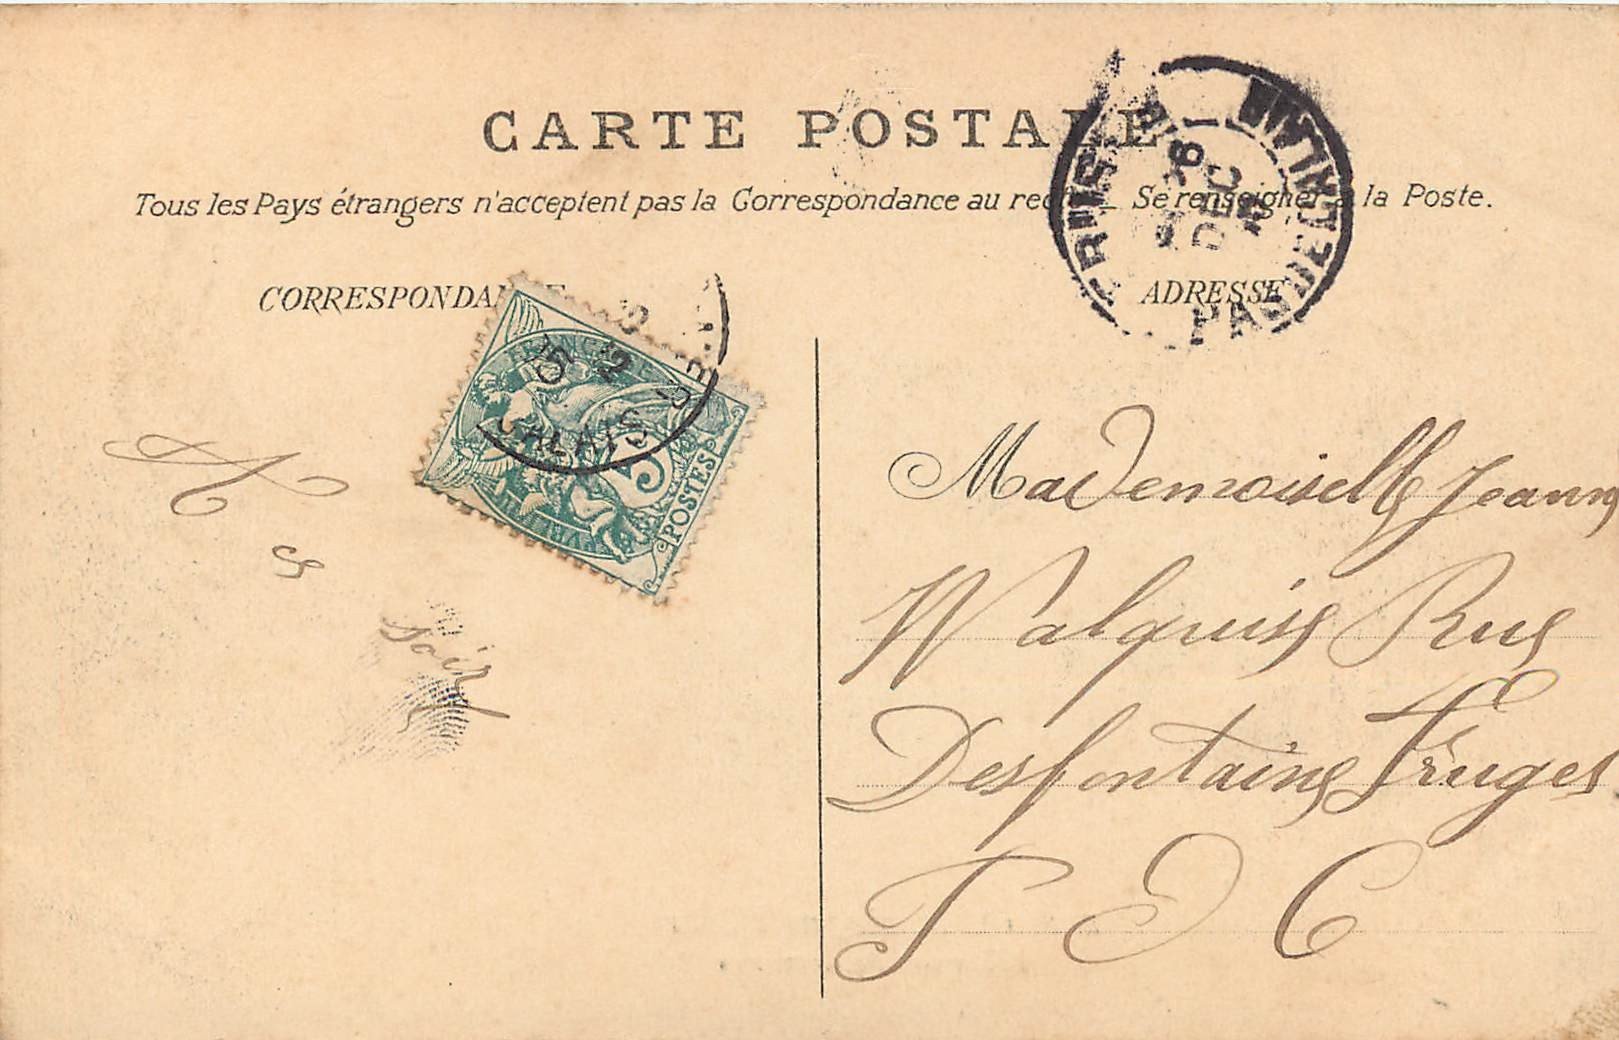 CARTE POSTALE
Tous les Pays étrangers n'acceptent pas la Correspondance au recto — Se renseigner à la Poste.
CORRESPONDANCE
ADRESSE
DEC
PAS DE CALAIS
5 12 05
CALAIS
FRANCE
5
POSTES
A
ce
soir
Mademoiselle Jeanne
Walquise Rue
Desfontaine Fruges
P D C